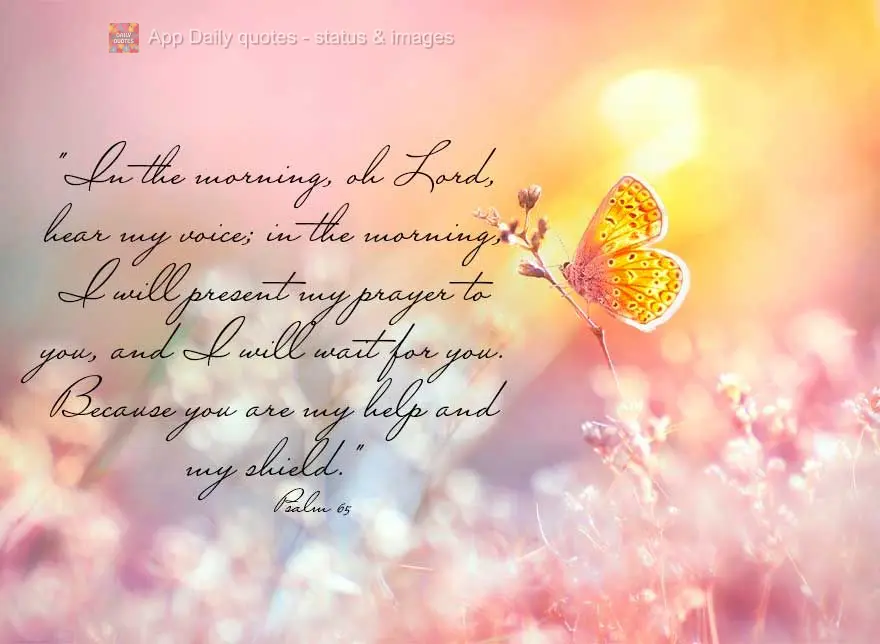 DAILY QUOTES
App Daily quotes - status & images
"In the morning, oh Lord,
hear my voice; in the morning,
I will present my prayer to
you, and I will wait for you.
Because you are my help and
my shield."
Psalm 65